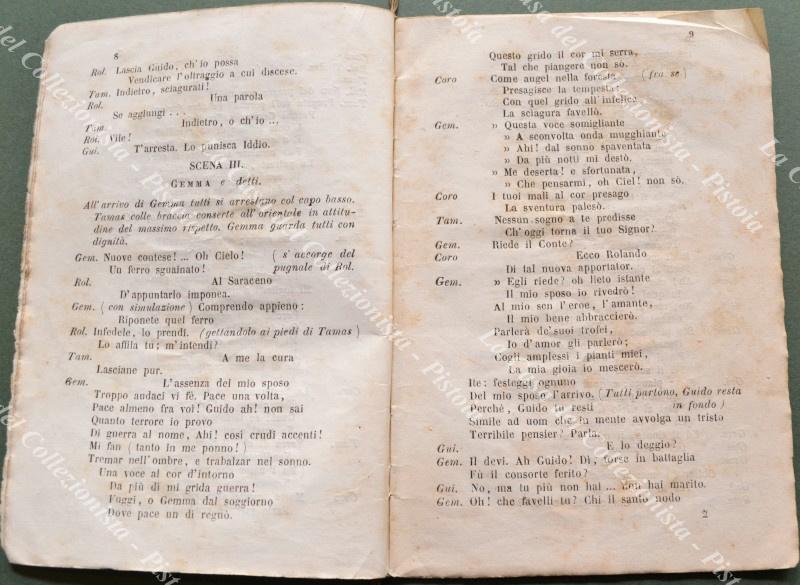 8
Rol. Lascia Guido, ch'io possa
Vendicare l'oltraggio a cui discese.
Tam. Indietro, sciagurati!
Rol. Una parola
Se aggiungi . . .
Tam. Indietro, o ch'io ...
Rol. Vile!
Gui. T'arresta. Lo punisca Iddio.
SCENA III.
GEMMA e detti.
All'arrivo di Gemma tutti si arrestano col capo basso.
Tamas colle braccia conserte all'orientale in attitu-
dine del massimo rispetto. Gemma guarda tutti con
dignità.
Gem. Nuove contese! ... Oh Cielo! ( s' accorge del
Un ferro sguainato! pugnale di Rol.
Rol. Al Saraceno
D'appuntarlo imponea.
Gem. ( con simulazione ) Comprendo appieno:
Riponete quel ferro
Rol. Infedele, lo prendi. (gettandolo ai piedi di Tamas)
Lo affila tu; m'intendi?
Tam. A me la cura
Lasciane pur.
Gem. L'assenza del mio sposo
Troppo audaci vi fè. Pace una volta,
Pace almeno fra voi! Guido ah! non sai
Quanto terrore io provo
Di guerra al nome, Ahi! così crudi accenti!
Mi fan ( tanto in me ponno! )
Tremar nell'ombre, e trabalzar nel sonno.
Una voce al cor d'intorno
Da più di mi grida guerra!
Fuggi, o Gemma dal soggiorno
Dove pace un dì regnò.
9
Questo grido il cor mi serra,
Tal che piangere non sò.
Coro Come augel nella foresta (fra se)
Presagisce la tempesta,
Con quel grido all'infelice
La sciagura favellò.
Gem. » Questa voce somigliante
» A sconvolta onda mugghiante
» Ahi! dal sonno spaventata
» Da più notti mi destò.
» Me deserta! e sfortunata,
» Che pensarmi, oh Ciel! non sò.
Coro I tuoi mali al cor presago
La sventura palesò.
Tam. Nessun sogno a te predisse
Ch'oggi torna il tuo Signor?
Gem. Riede il Conte?
Coro Ecco Rolando
Di tal nuova apportator.
Gem. » Egli riede? oh lieto istante
Il mio sposo io rivedrò!
Al mio sen l'eroe, l'amante,
Il mio bene abbraccierò.
Parlerà de' suoi trofei,
Io d'amor gli parlerò;
Cogli amplessi i pianti miei,
La mia gioia io mescerò.
Ite: festeggi ognuno
Del mio sposo l'arrivo. (Tutti partono, Guido resta
Perchè, Guido tu resti in fondo)
Simile ad uom che in mente avvolga un tristo
Terribile pensier? Parla.
Gui. E lo deggio?
Gem. Il devi. Ah Guido! Di, forse in battaglia
Fù il consorte ferito?
Gui. No, ma tu più non hai ... non hai marito.
Gem. Oh! che favelli tu? Chi il santo nodo
2
La Casa del Collezionista - Pistoia